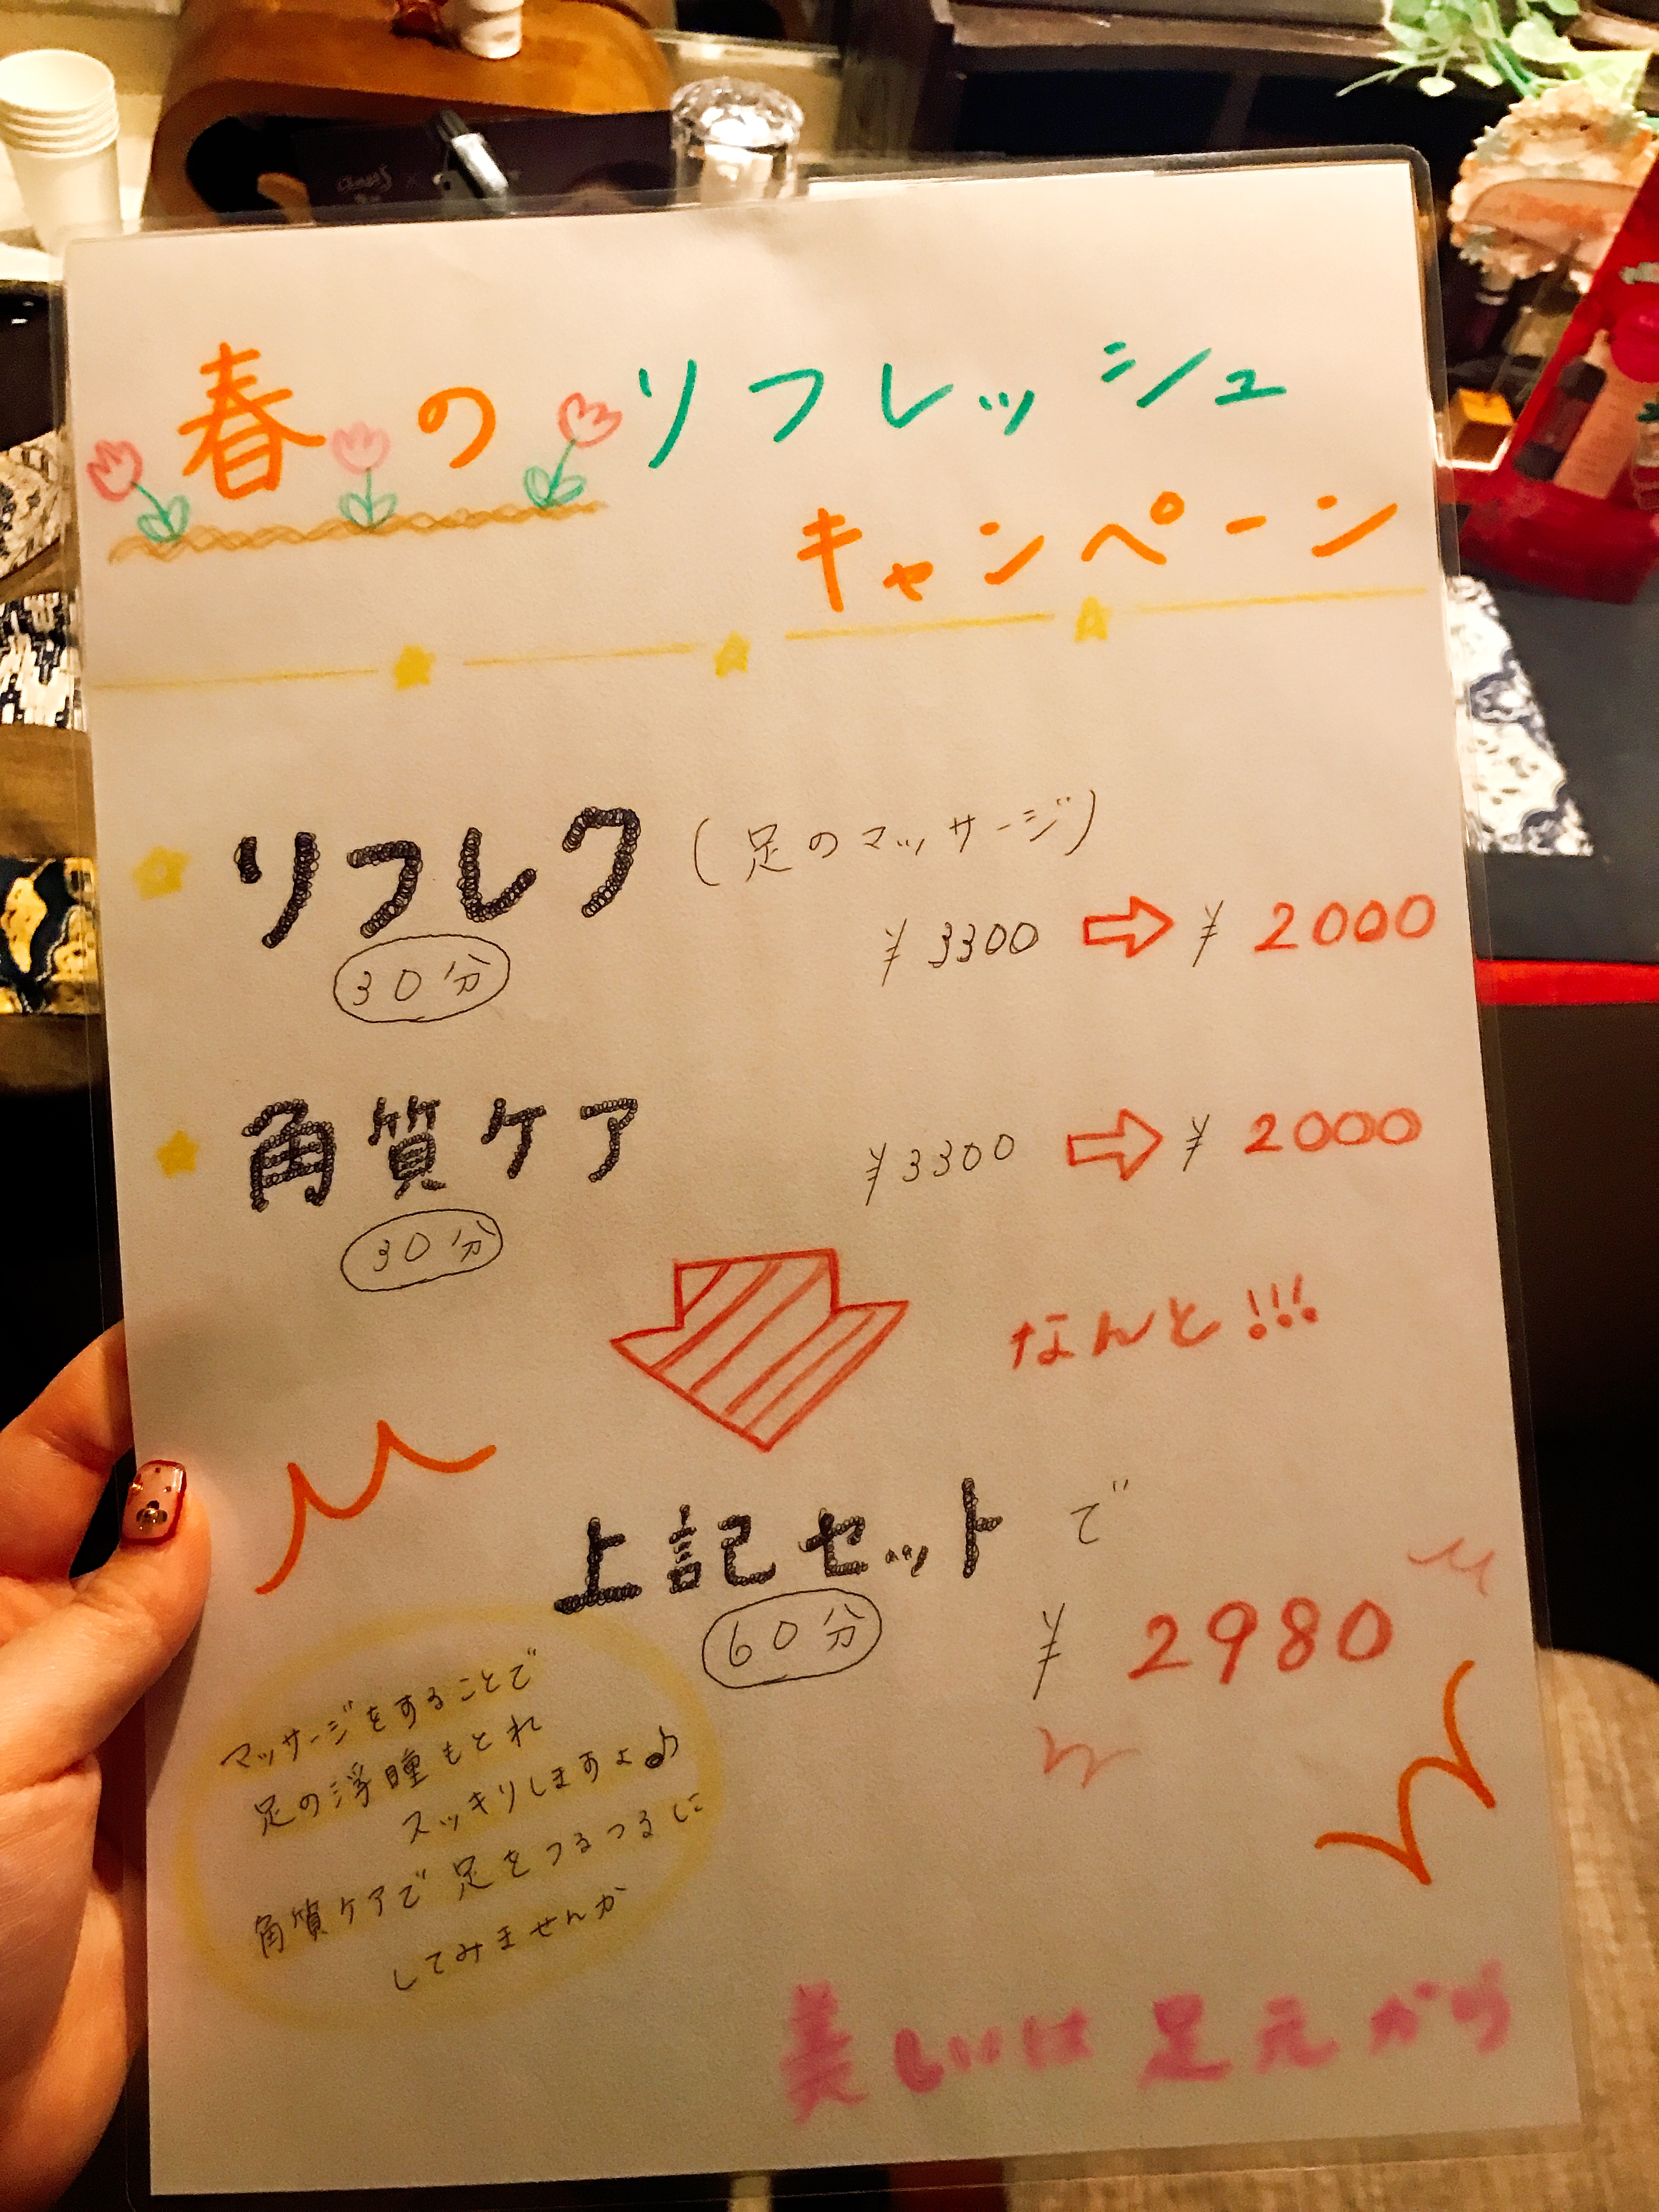 春のリフレッシュ
キャンペーン
リフレク (足のマッサージ)
30分
¥3300 ⇨ ¥2000
角質ケア
30分
¥3300 ⇨ ¥2000
なんと!!!
上記セットで
60分
¥2980
マッサージをすることで
足の浮腫もとれ
スッキリしますよ♪
角質ケアで足をつるつるに
してみませんか
美しいは足元から